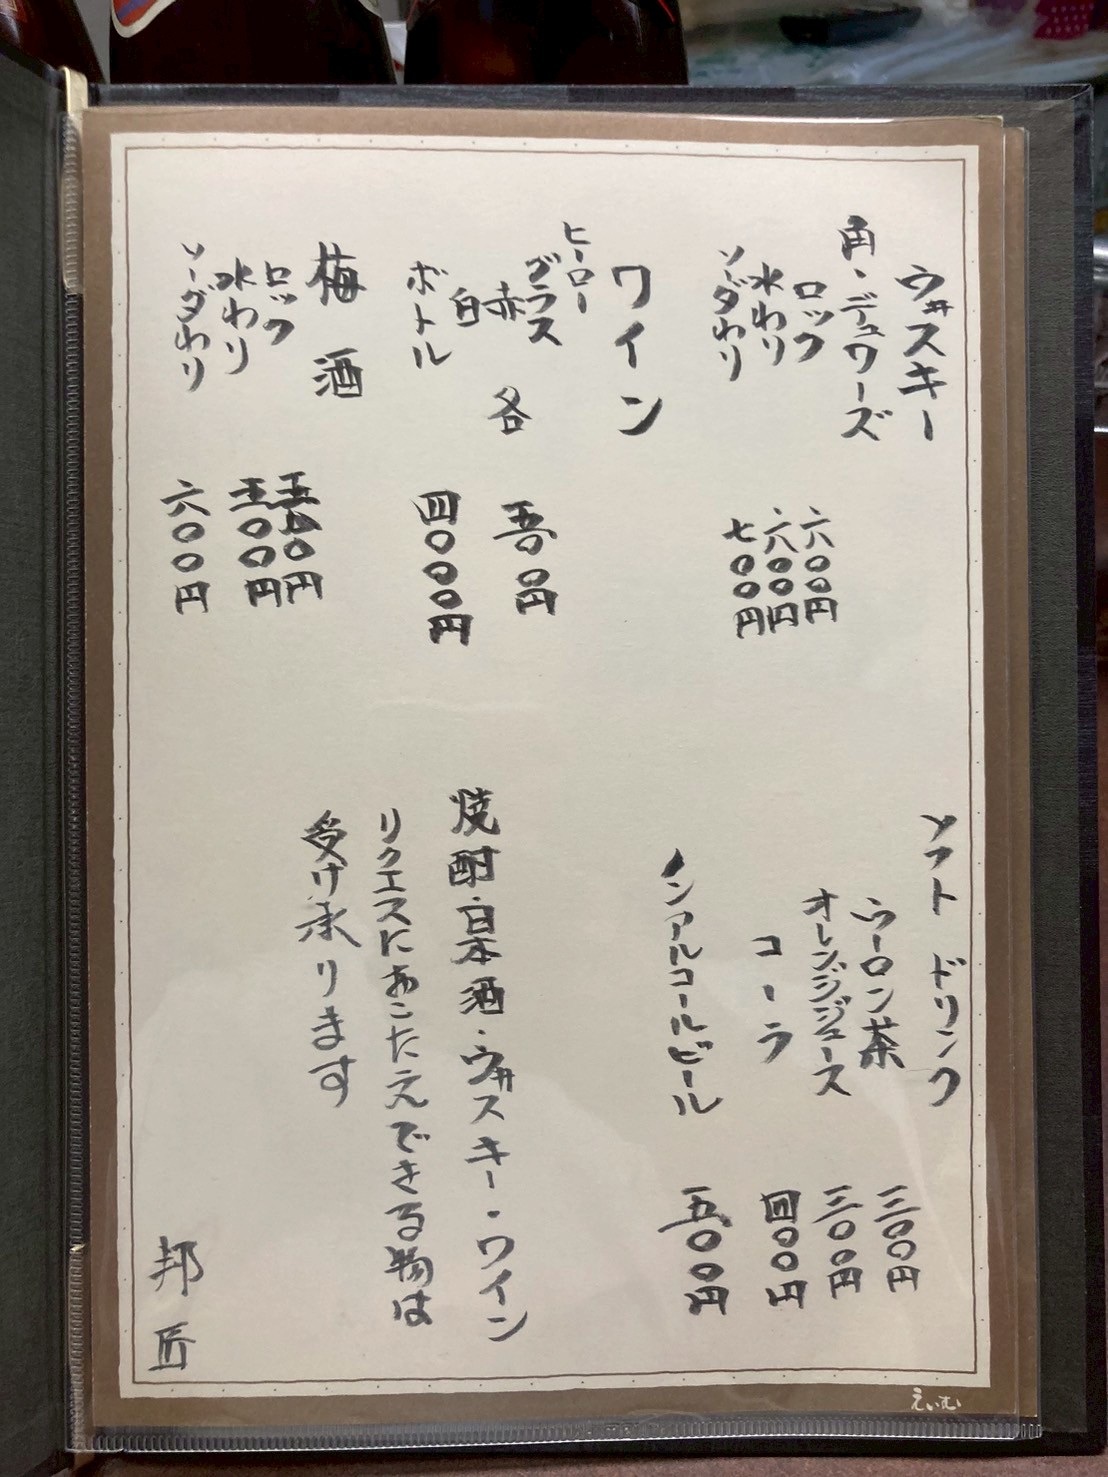 ウヰスキー
角・デュワーズ
ロック 六〇〇円
水わり 六〇〇円
ソーダわり 七〇〇円
ワイン
ヒーロー
グラス
赤 各 五〇〇円
白
ボトル 四〇〇〇円
梅酒
ロック 五〇〇円
水わり 五〇〇円
ソーダわり 六〇〇円
ソフトドリンク
ウーロン茶 三〇〇円
オレンジジュース 三〇〇円
コーラ 四〇〇円
ノンアルコールビール 五〇〇円
焼酎・日本酒・ウヰスキー・ワイン
リクエスにおこたえできる物は
受け承ります
邦匠
えいむ